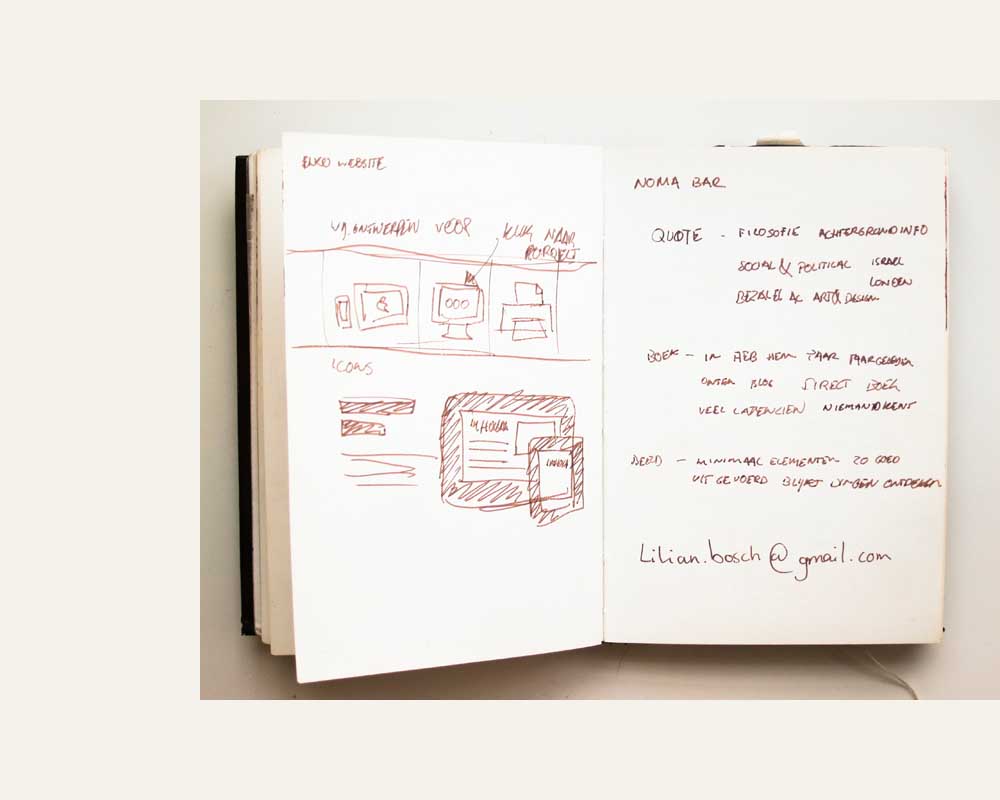 WEBSITE
WIJ ONTWERPEN VOOR
KLIK NAAR
PROJECT
ICONS
NOMA BAR
QUOTE - FILOSOFIE ACHTERGRONDINFO
SOCIAL & POLITICAL ISRAEL
LONDEN
BEZALEL AC ART & DESIGN
BOEK - IK HEB HEM PAAR
BLOG DIRECT BOEK
VEEL NIEMAND KENT
- MINIMAAL ELEMENTEN ZO GOED
UITGEVOERD BLIJFT DINGEN ONTDEKKEN
Lilian.bosch@gmail.com